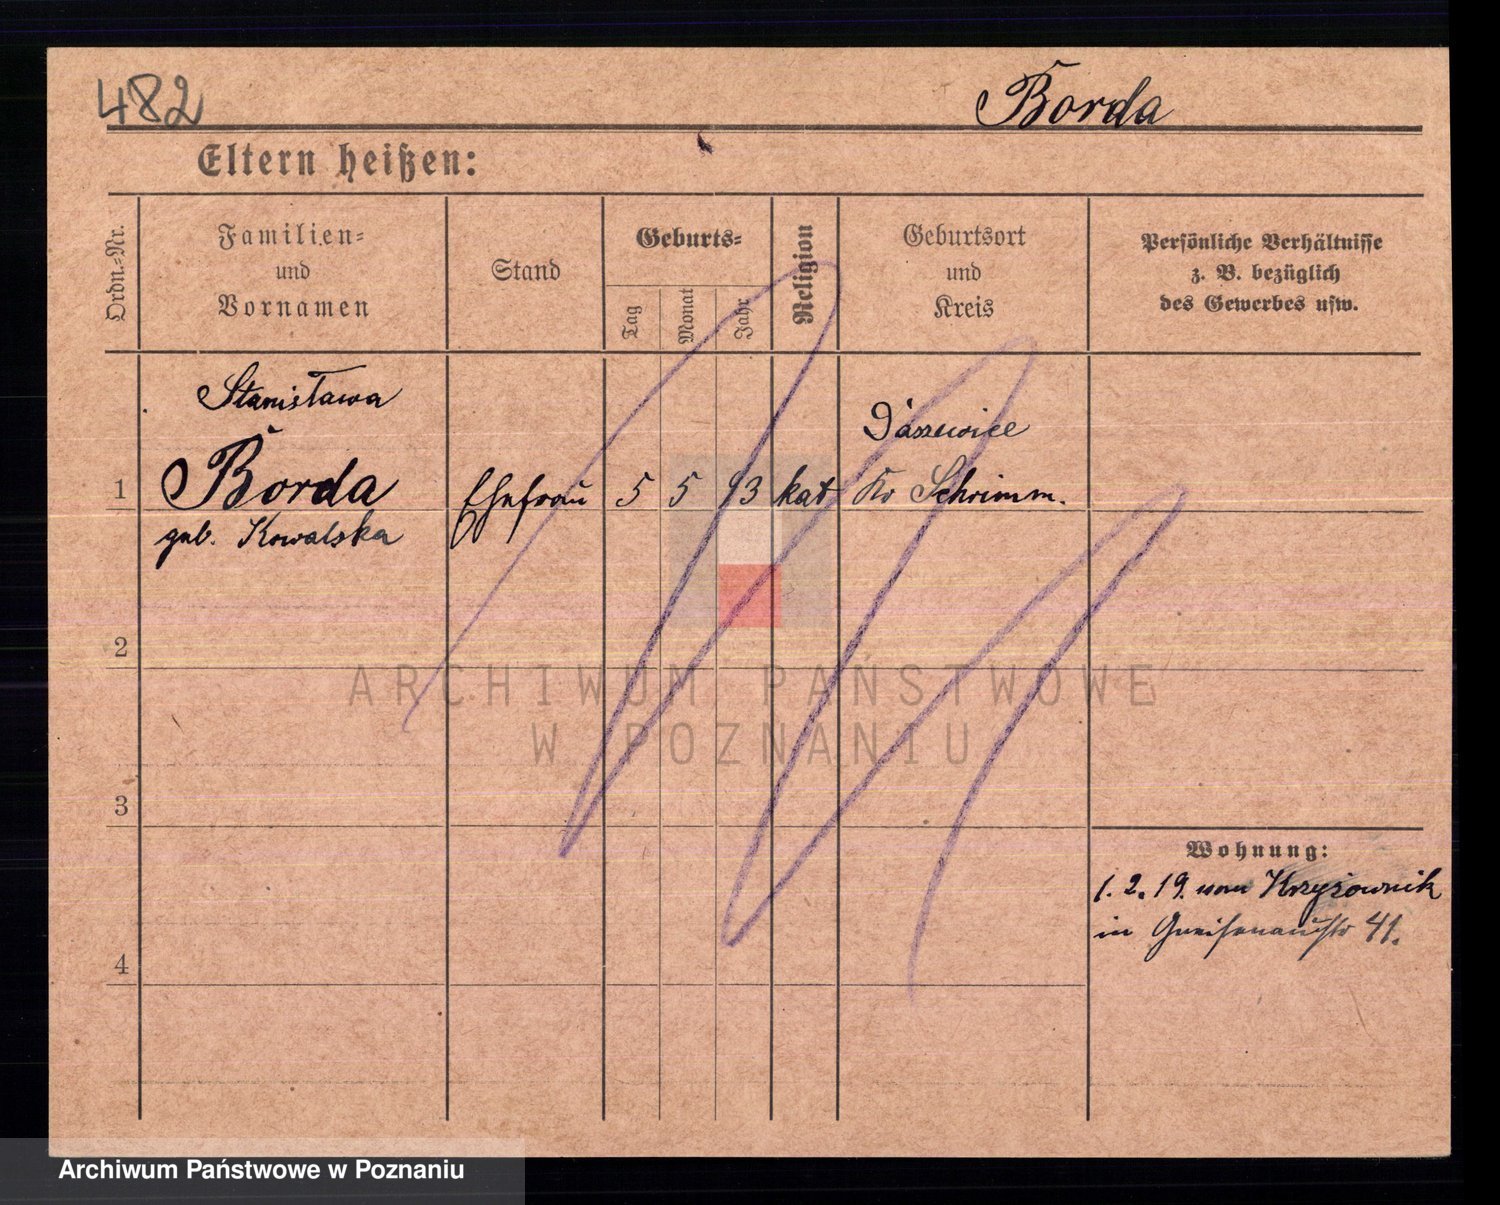 482
Borda
Eltern heißen:
Ordn.-Nr.
Familien-
und
Vornamen
Stand
Geburts-
Tag
Monat
Jahr
Religion
Geburtsort
und
Kreis
Persönliche Verhältnisse
z. B. bezüglich
des Gewerbes usw.
Stanisława
1 Borda Ehefrau 5 5 93 kat Kr Schrimm.
geb. Kowalska
2
3
4
Wohnung:
1. 2. 19. von Krzyżownik
in Gneisenaustr 41.
ARCHIWUM PAŃSTWOWE
W POZNANIU
Archiwum Państwowe w Poznaniu